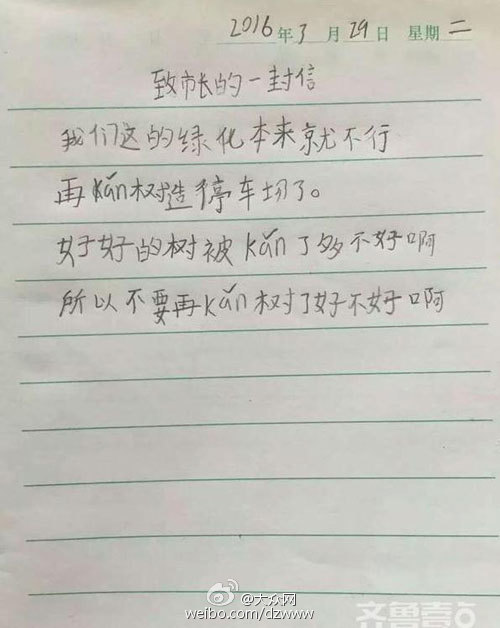 2016年3月29日 星期二
致市长的一封信
我们这的绿化本来就不行
再kǎn树造停车场了。
好好的树被kǎn了多不好啊
所以不要再kǎn树了好不好啊
@大众网
weibo.com/dzwww
齐鲁壹点